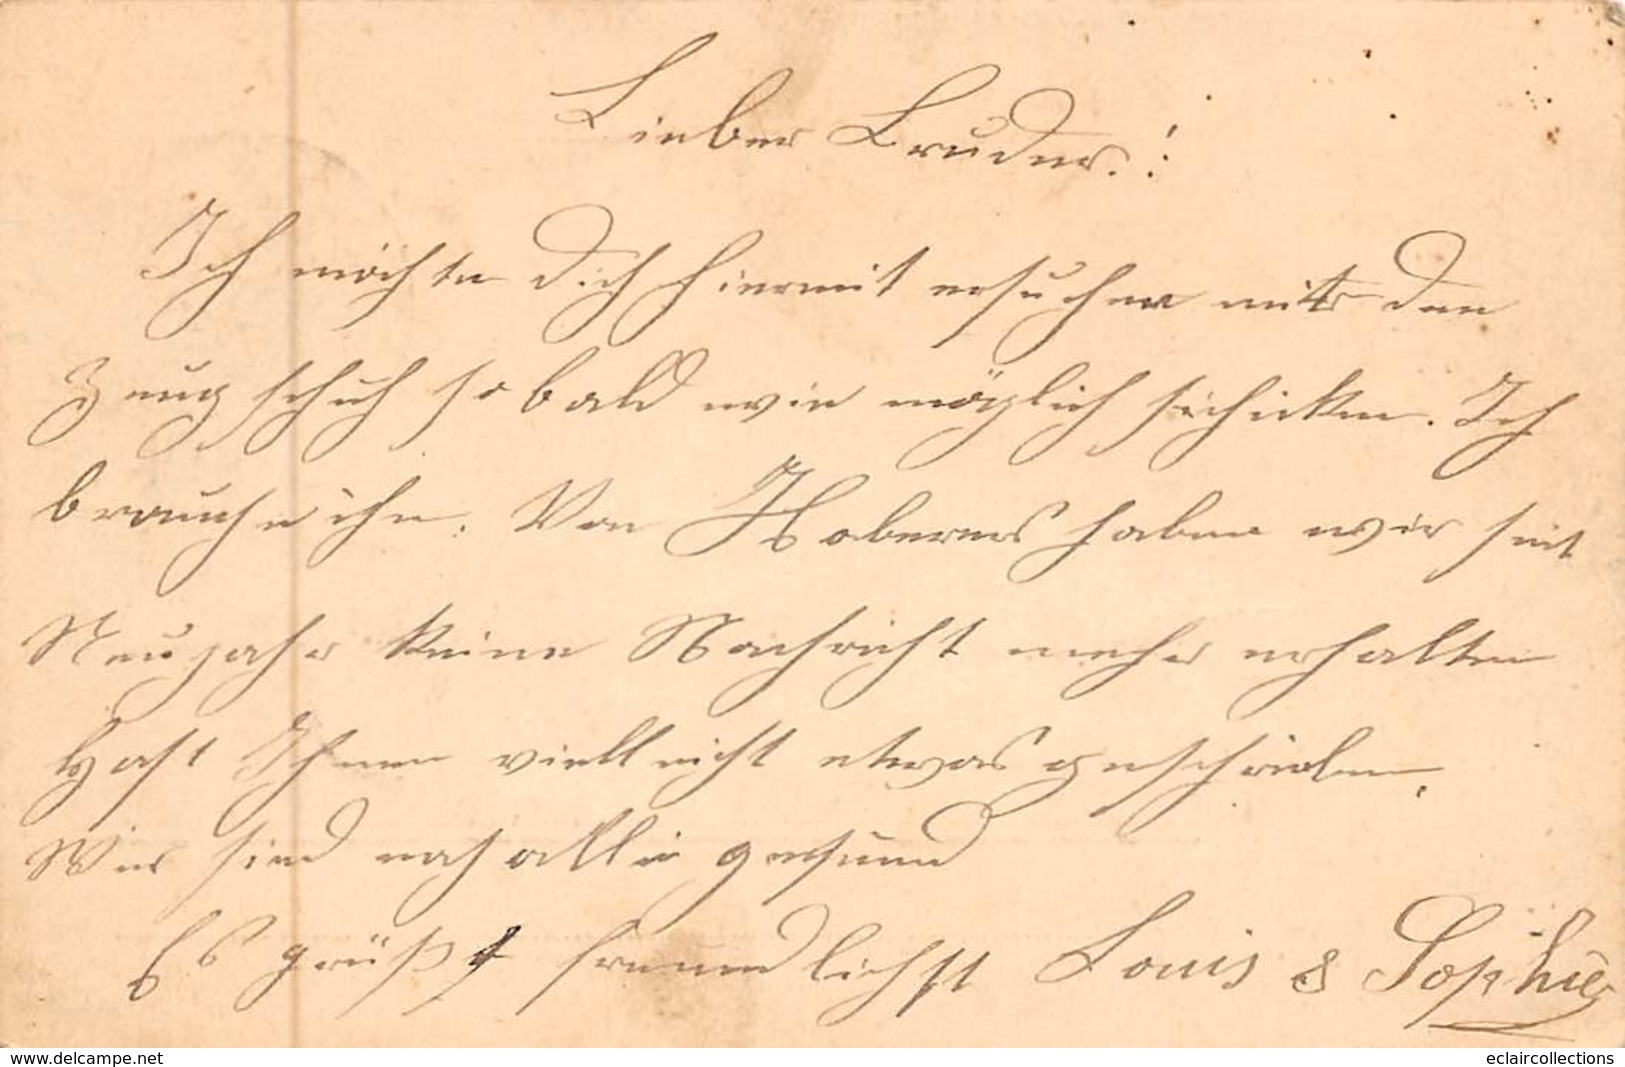 Lieber Bruder.!
Ich möchte dich hiermit ersuchen mir den
Zeugschuh sobald wie möglich schicken. Ich
brauche ihn. Von haben wir seit
Neujahr keine Nachricht mehr erhalten
Hast Ihnen vielleicht etwas geschrieben,
Wir sind noch alle gesund
Es grüßt freundlichst Louis & Sophie
www.delcampe.net
eclaircollections